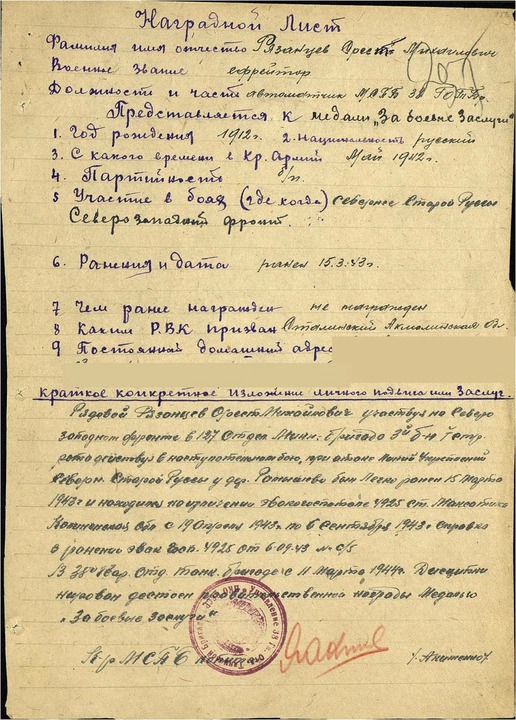 Наградной Лист
Фамилия имя отчество Рязанцев Орест Михайлович
Военное звание ефрейтор
Должность и часть автоматчик МСПБ 38 ГОТБр.
Представляется к медали „За боевые Заслуги"
1. Год рождения 1912г. 2. Национальность русский
3. С какого времени в Кр. Армии Май 1942г.
4. Партийность б/п.
5 Участие в боях (где когда) севернее Старой Руссы
Северозападный фронт.
6. Ранения и дата ранен 15.3.43г.
7 Чем ранее награжден не награжден
8 Каким Р.В.К призван Сталинский Акмолинская ол.
9 Постоянный домашний адрес
Краткое конкретное изложение личного подвига или заслуг.
Рядовой Рязанцев Орест Михайлович участвуя на Северо
западном фронте в 127 Отдел. бригаде 3й б-н 1 стр
рота действуя в наступательном бою, при атаке линий укреплений
Северн. Старой Руссы у дер. был легко ранен 15 Марта
1943г и находился на излечении эвакогоспитале 4925 ст. Максатиха
Калининская обл с 19 Апреля 1943г по 6 Сентября 1943г справка
о ранении эвак госп. 4925 от 6-09.43 № с/5
В 38 гвар. Отд. танк. бригаде с 11 Марта 1944г. Дисципли
нирован достоен правительственной награды Медалью
„За боевые заслуги"